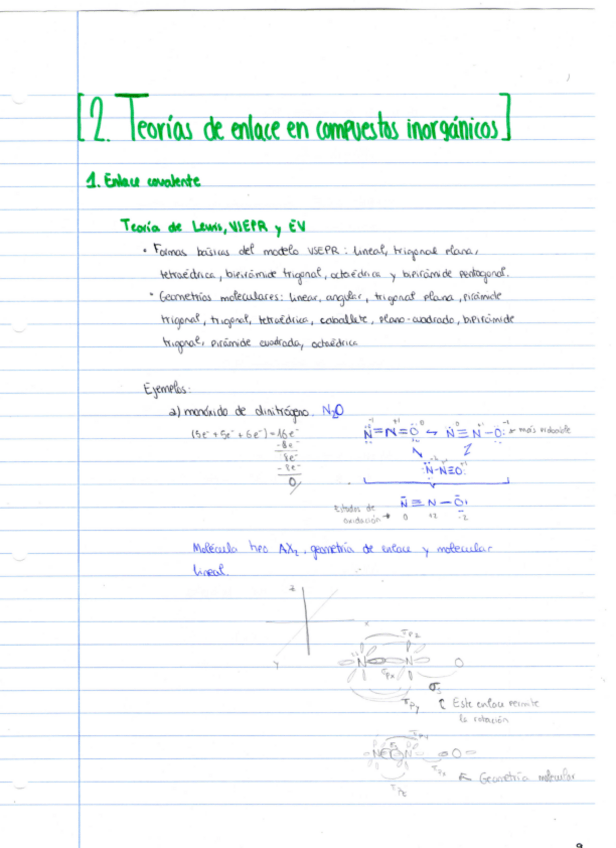 [2. Teorías de enlace en compuestos inorgánicos]
1. Enlace covalente
Teoría de Lewis, VSEPR y EV
• Formas básicas del modelo VSEPR: lineal, trigonal plana,
tetraédrica, bipirámide trigonal, octaédrica y bipirámide pentagonal.
• Geometrías moleculares: linear, angular, trigonal plana, pirámide
trigonal, trigonal, tetraédrica, caballete, plano-cuadrado, bipirámide
trigonal, pirámide cuadrada, octaédrica
Ejemplos:
a) monóxido de dinitrógeno. N₂O
(5e⁻ + 5e⁻ + 6e⁻) = 16e⁻
-8e⁻
8e⁻
-8e⁻
0
N=N=O ↔ N≡N-O: más
N-N≡O:
N≡N-O:
Estados de
oxidación → 0 +2 -2
Molécula tipo AX₂, geometría de enlace y molecular
lineal.
z
x
y
N N O
Este enlace permite
la rotación
N N O
Geometría molecular
9